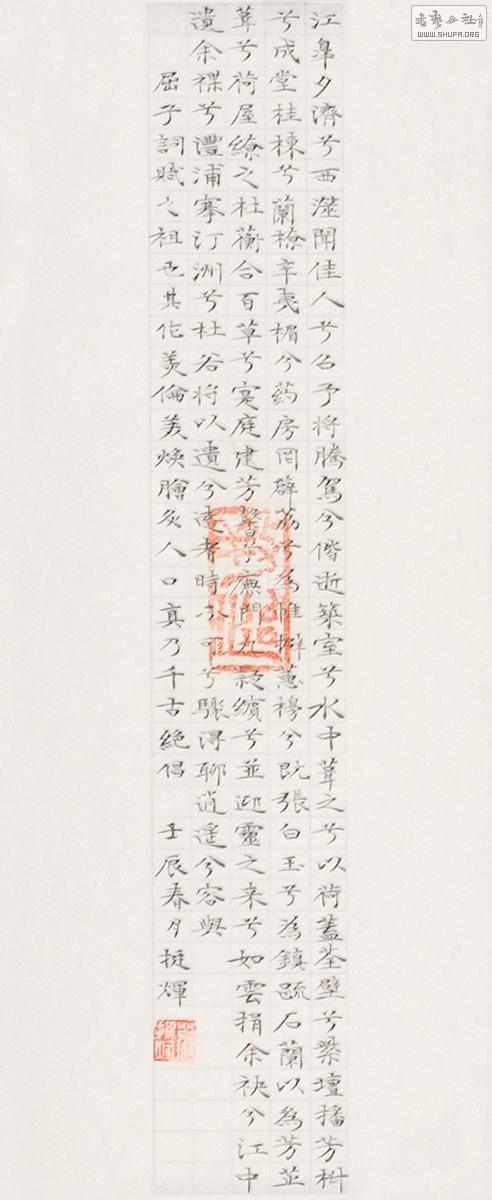 江皋夕濟兮西澨聞佳人兮召予將騰駕兮偕逝築室兮水中葺之兮以荷蓋荃壁兮紫壇播芳椒
兮成堂桂棟兮蘭橑辛夷楣兮葯房罔薜荔兮為帷擗蕙櫋兮既張白玉兮為鎮疏石蘭以為芳芷
葺兮荷屋繚之杜蘅合百草兮實庭建芳馨兮廡門九嶷繽兮並迎靈之来兮如雲捐余袂兮江中
遺余褋兮澧浦搴汀洲兮杜若將以遺兮遠者時不可兮驟得聊逍遙兮容與
屈子詞賦之祖也其作美倫美煥膾炙人口真乃千古絕倡 壬辰春夕挺輝
書藝公社
WWW.SHUFA.ORG